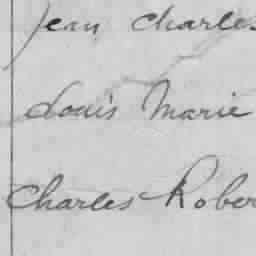 Jean Charles
Louis Marie
Charles Rober